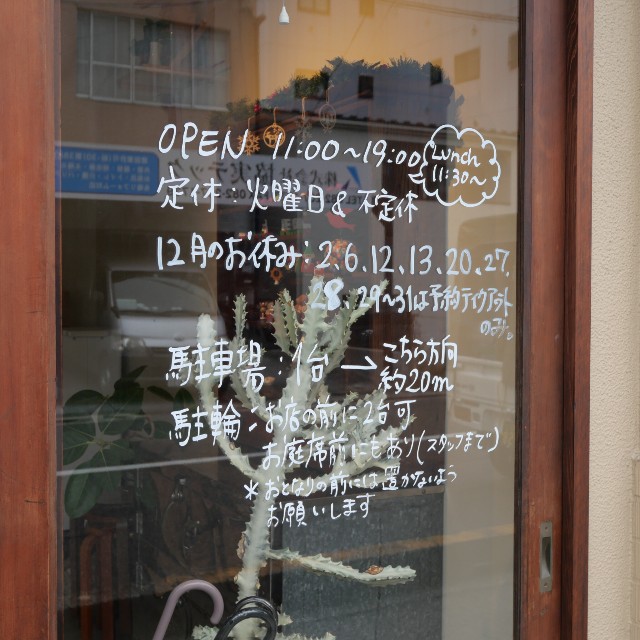 OPEN 11:00~19:00
Lunch
11:30~
定休 火曜日 & 不定休
12月のお休み: 2.6.12.13.20.27.
28.29~31は予約テイクアウト
のみ。
駐車場・1台 → こちら方向
約20m
駐輪:お店の前に2台可
お庭席前にもあり(スタッフまで)
*おとなりの前には置かないよう
お願いします